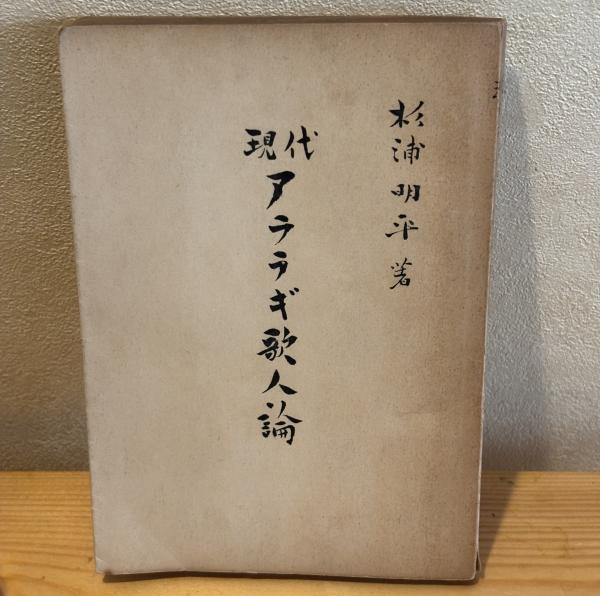 杉浦明平 著
現代
アララギ歌人論